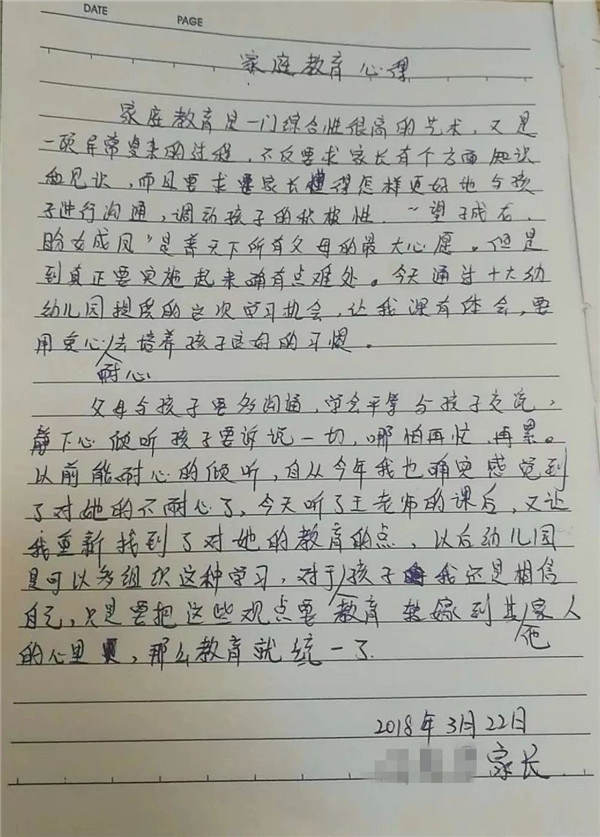 DATE
PAGE
家庭教育心得
家庭教育是一门综合性很高的艺术，又是
一项异常复杂的过程，不仅要求家长有个方面知识
和见识，而且要求家长懂得怎样更好地与孩
子进行沟通，调动孩子的积极性，“望子成龙，
盼女成凤”是普天下所有父母的最大心愿。但是
到真正要实施起来确有点难处。今天通过十大幼
幼儿园提供的这次学习机会，让我深有体会，要
用爱心耐心去培养孩子良好的习惯。
父母与孩子要多沟通，学会平等与孩子交流，
静下心倾听孩子要诉说一切，哪怕再忙、再累。
以前能耐心的倾听，自从今年我也确实感觉到
了对她的不耐心了，今天听了王老师的课后，又让
我重新找到了对她的教育的点，以后幼儿园
是可以多组织这种学习，对于教孩子我还是相信
自己，只是要把这些观点要教育转嫁到其他家人
的心里，那么教育就统一了
2018年3月22日
家长